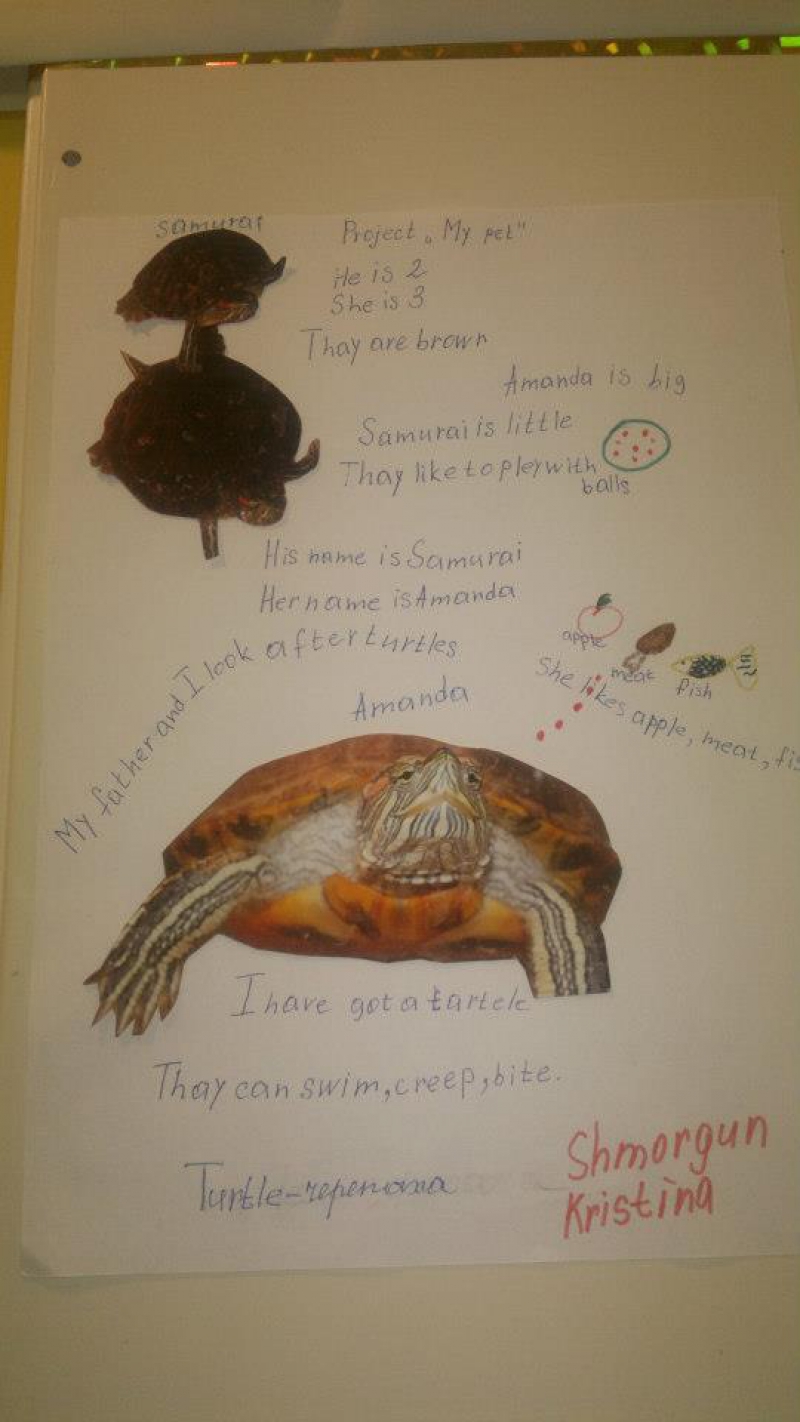 samurai
Project „My pet"
He is 2
She is 3
Thay are brown
Amanda is big
Samurai is little
Thay like to pley with
balls
His name is Samurai
Her name is Amanda
My father and I look after turtles
apple
meat
fish
She likes apple, meat, fis
Amanda
I have got a tartele
Thay can swim, creep, bite.
Turtle-черепаха
Shmorgun
Kristina